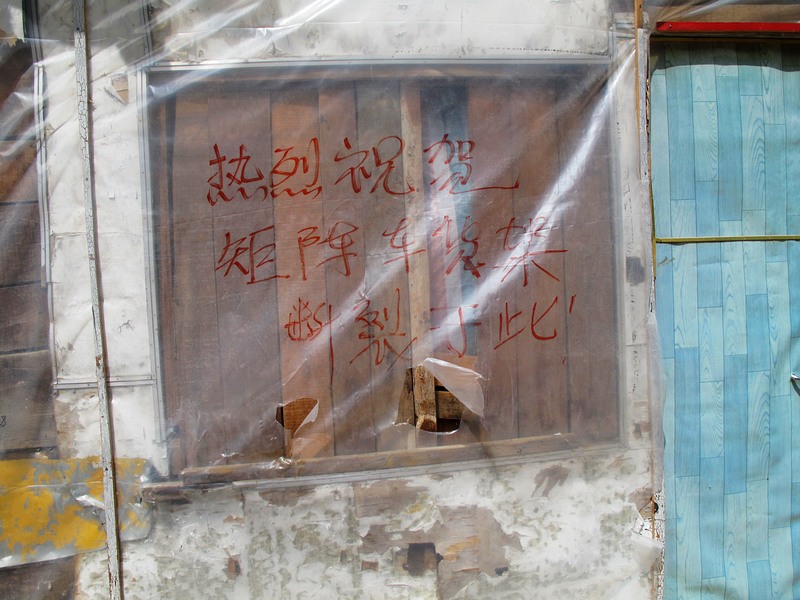 热烈祝贺
矩阵车架
断裂于此!